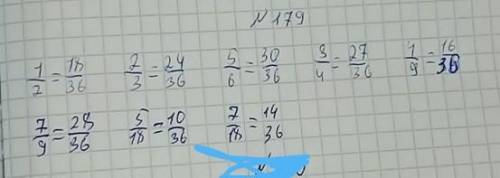 №179
1/2=18/36 2/3=24/36 5/6=30/36 3/4=27/36 1/9=16/36
7/9=28/36 5/18=10/36 7/18=14/36